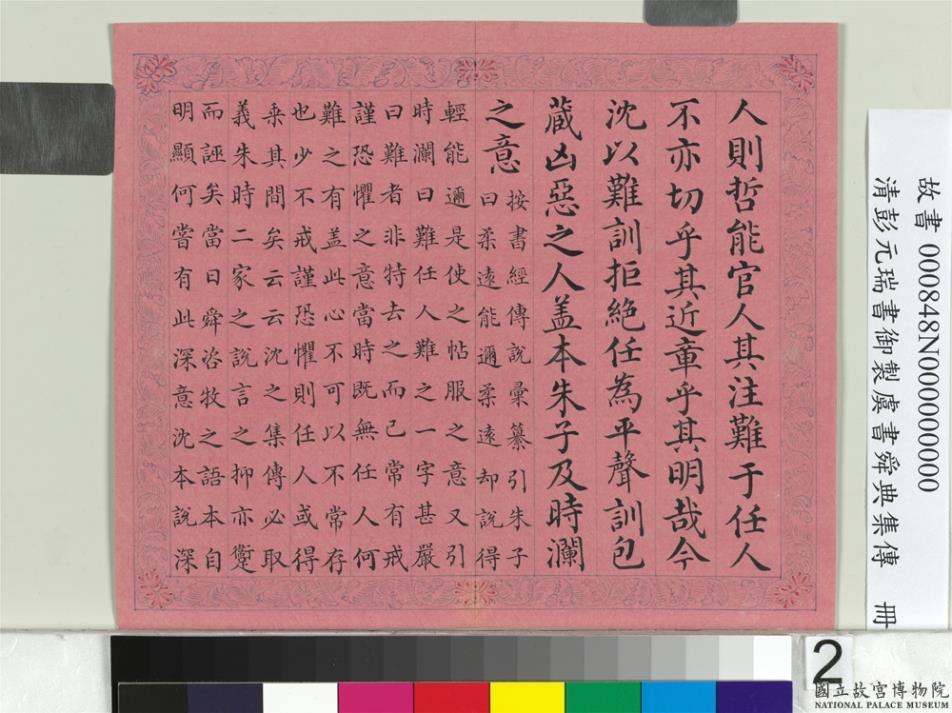 人則哲能官人其注難于任人
不亦切乎其近童乎其明哉今
沈以難訓拒絶任為平聲訓包
蔵凶惡之人盖本朱子及時瀾
之意按書經傳說彙纂引朱子
曰柔遠能邇柔遠却說得
輕能邇是使之帖服之意又引
時瀾曰難任人難之一字甚嚴
曰難者非特去之而已常有戒
謹恐懼之意當時既無任人何
難之有盖此心不可以不常存
也少不戒謹恐懼則任人或得
乘其間矣云云沈之集傳必取
義朱時二家之說言之抑亦躗
而誣矣當日舜咨牧之語本自
明顯何嘗有此深意沈本說深
故書 000848N000000000
清彭元瑞書御製虞書舜典集傳 冊
2
國立故宮博物院
NATIONAL PALACE MUSEUM